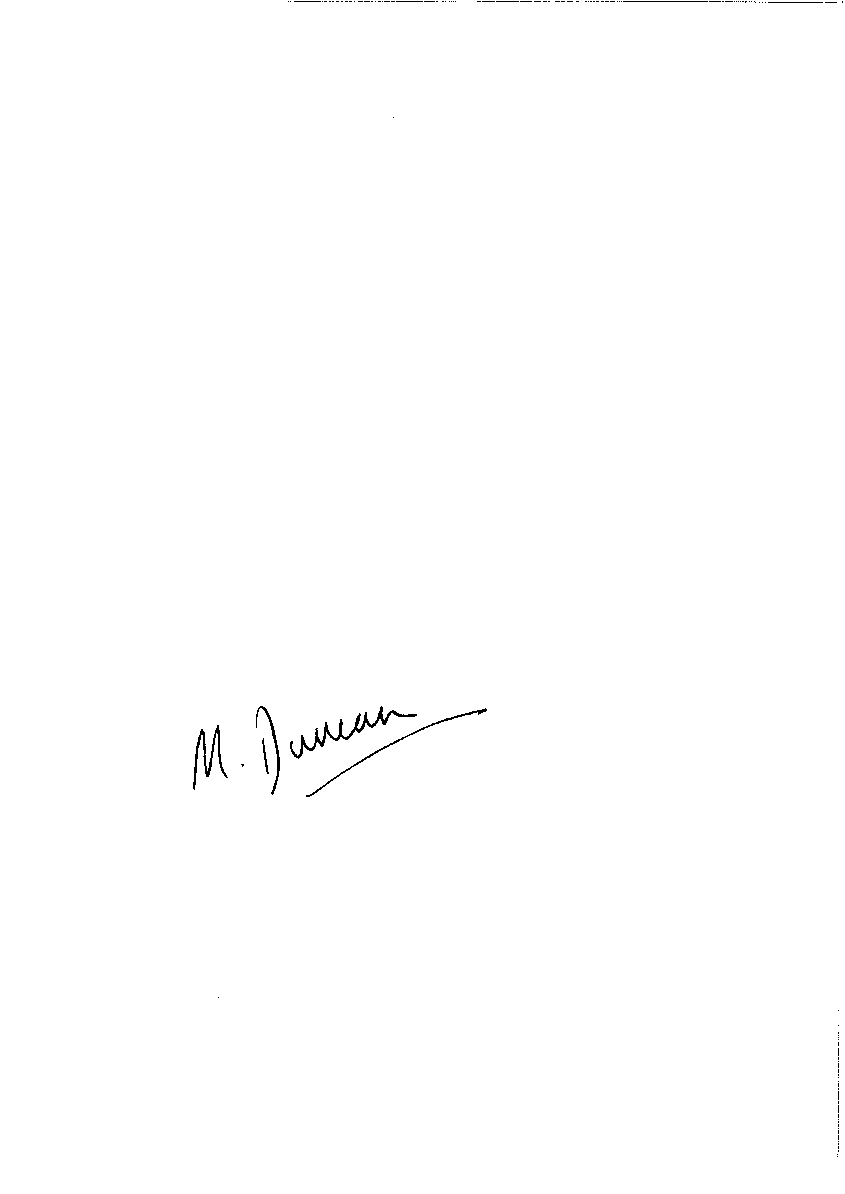 M. Duncan